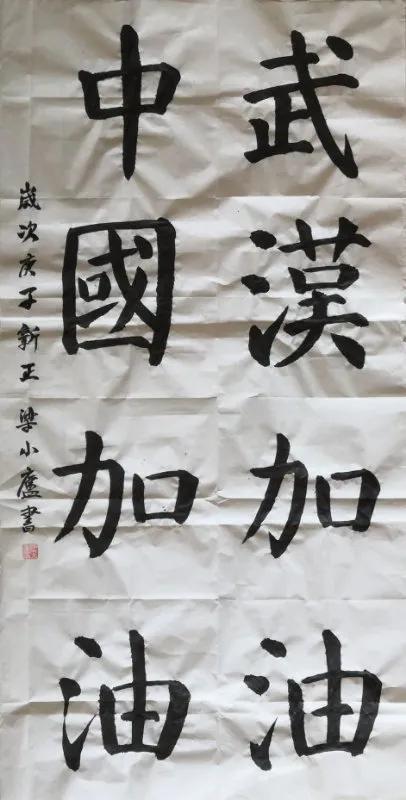 武漢加油
中國加油
歲次庚子新正 梁小廬書